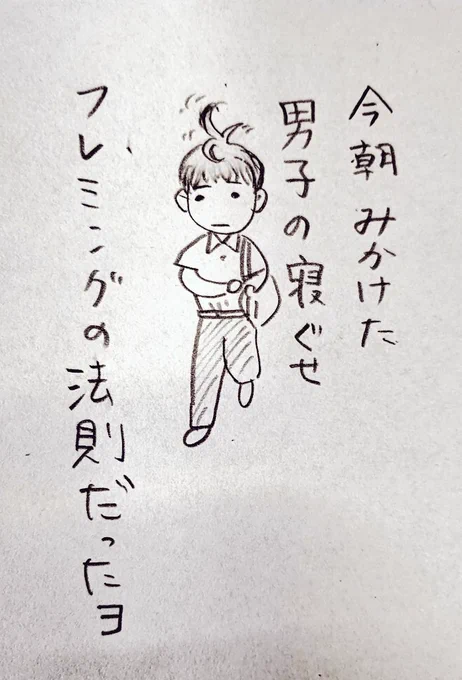 今朝 みかけた
男子の寝ぐせ
フレミングの法則だったヨ